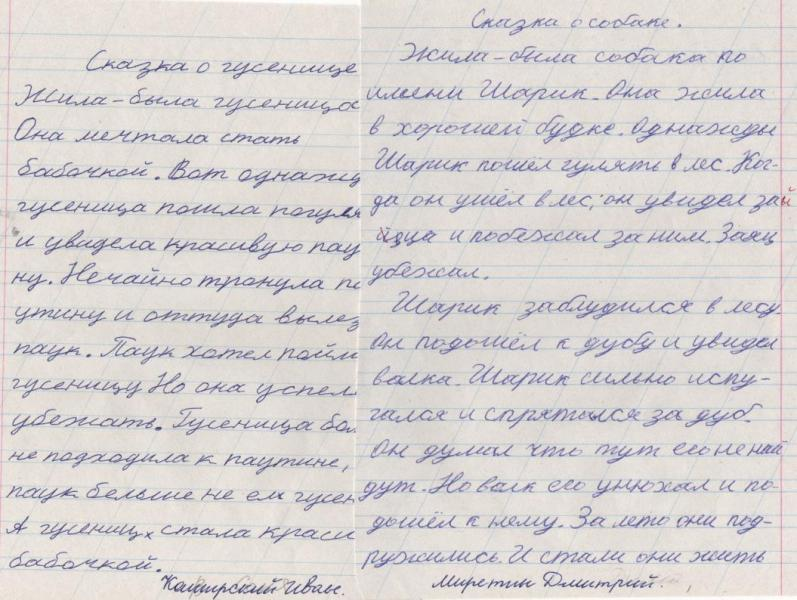 Сказка о гусенице
Жила-была гусеница
Она мечтала стать
бабочкой. Вот однаж
гусеница пошла погуля
и увидела красивую пау
ну. Нечайно тронула па
утину и оттуда вылез
паук. Паук хотел пойм
гусеницу Но она успел
убежать. Гусеница бол
не подходила к паутине,
паук больше не ел гусен
А гусениц стала краси
бабочкой.
Каширский Иван.
Сказка о собаке.
Жила-была собака по
имени Шарик. Она жила
в хорошей будке. Однажды
Шарик пошёл гулять в лес. Ког-
да он ушёл в лес, он увидел зай
йца и побежал за ним. Заяц
убежал.
Шарик заблудился в лесу.
Он подошёл к дубу и увидел
волка. Шарик сильно испу-
гался и спрятался за дуб.
Он думал что тут его не най
дут. Но волк его унюхал и по-
дошёл к нему. За лето они под-
ружились. И стали они жить
Миретин Дмитрий.